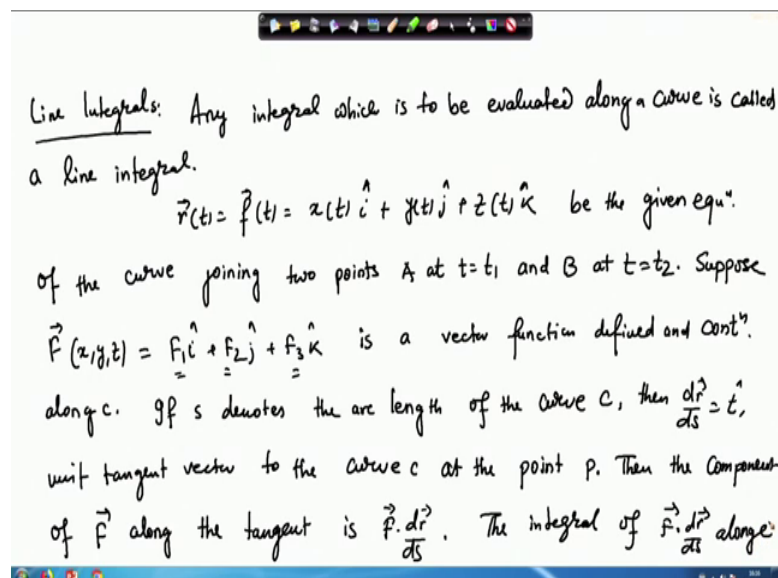 Line Integrals: Any integral which is to be evaluated along a curve is called
a line integral.
r⃗(t) = f⃗(t) = x(t) î + y(t) ĵ + z(t) k̂ be the given equⁿ.
of the curve joining two points A at t=t₁ and B at t=t₂. Suppose
F⃗(x,y,z) = f₁î + f₂ĵ + f₃k̂ is a vector function defined and contⁿ.
along c. If s denotes the arc length of the curve C, then dr⃗/ds = t̂,
unit tangent vector to the curve c at the point P. Then the component
of F⃗ along the tangent is F⃗.dr⃗/ds. The integral of F⃗.dr⃗/ds along c